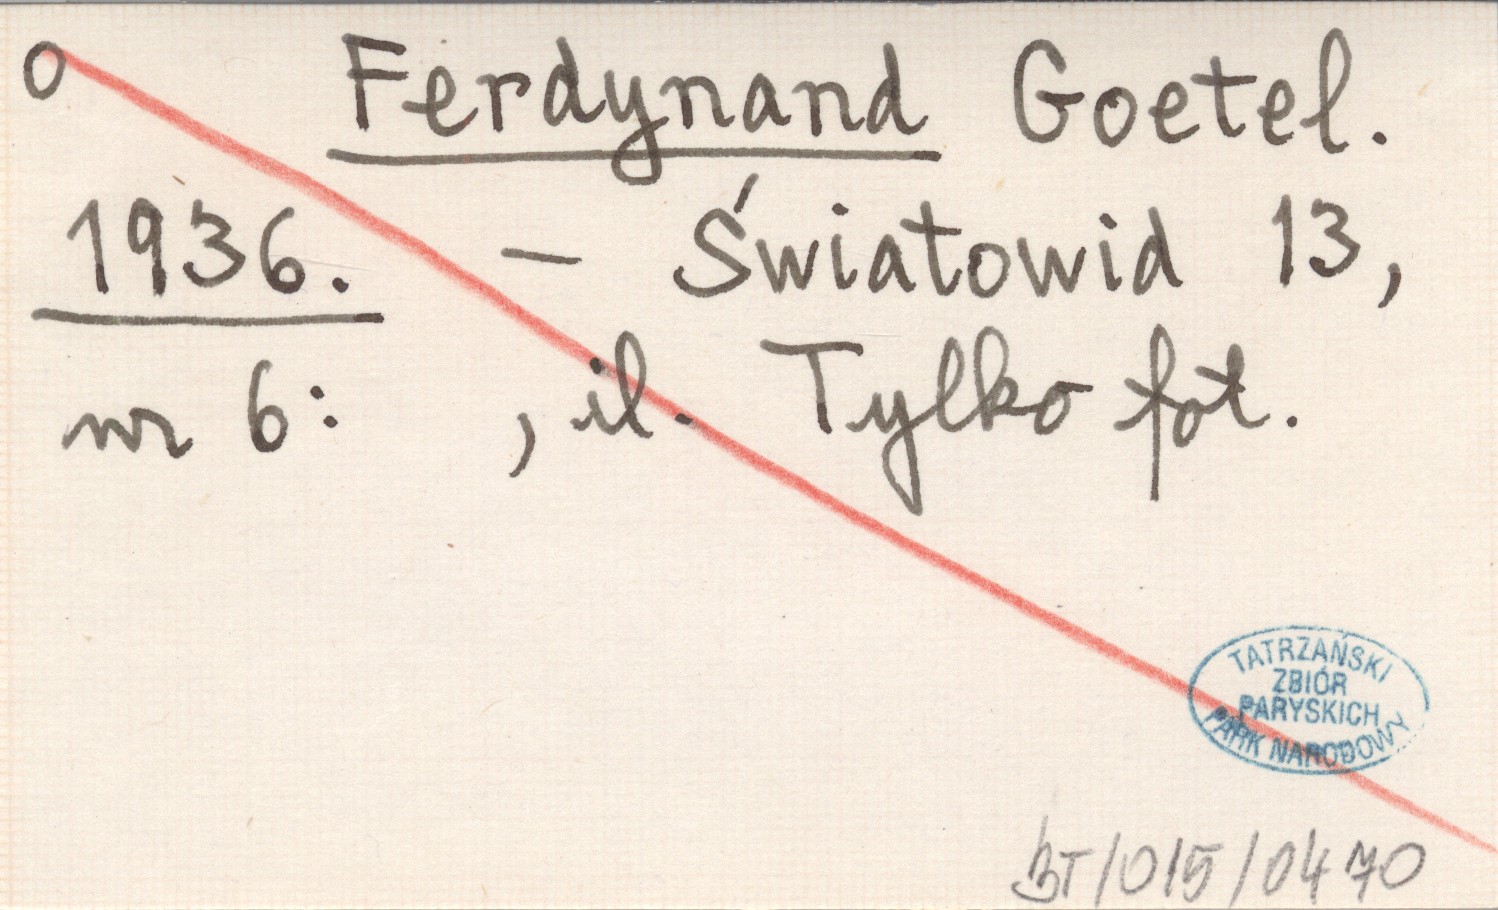 o Ferdynand Goetel.
1936. – Światowid 13,
nr 6: , il. Tylko fot.
TATRZAŃSKI
ZBIÓR
PARYSKICH
PARK NARODOWY
BT/015/0470